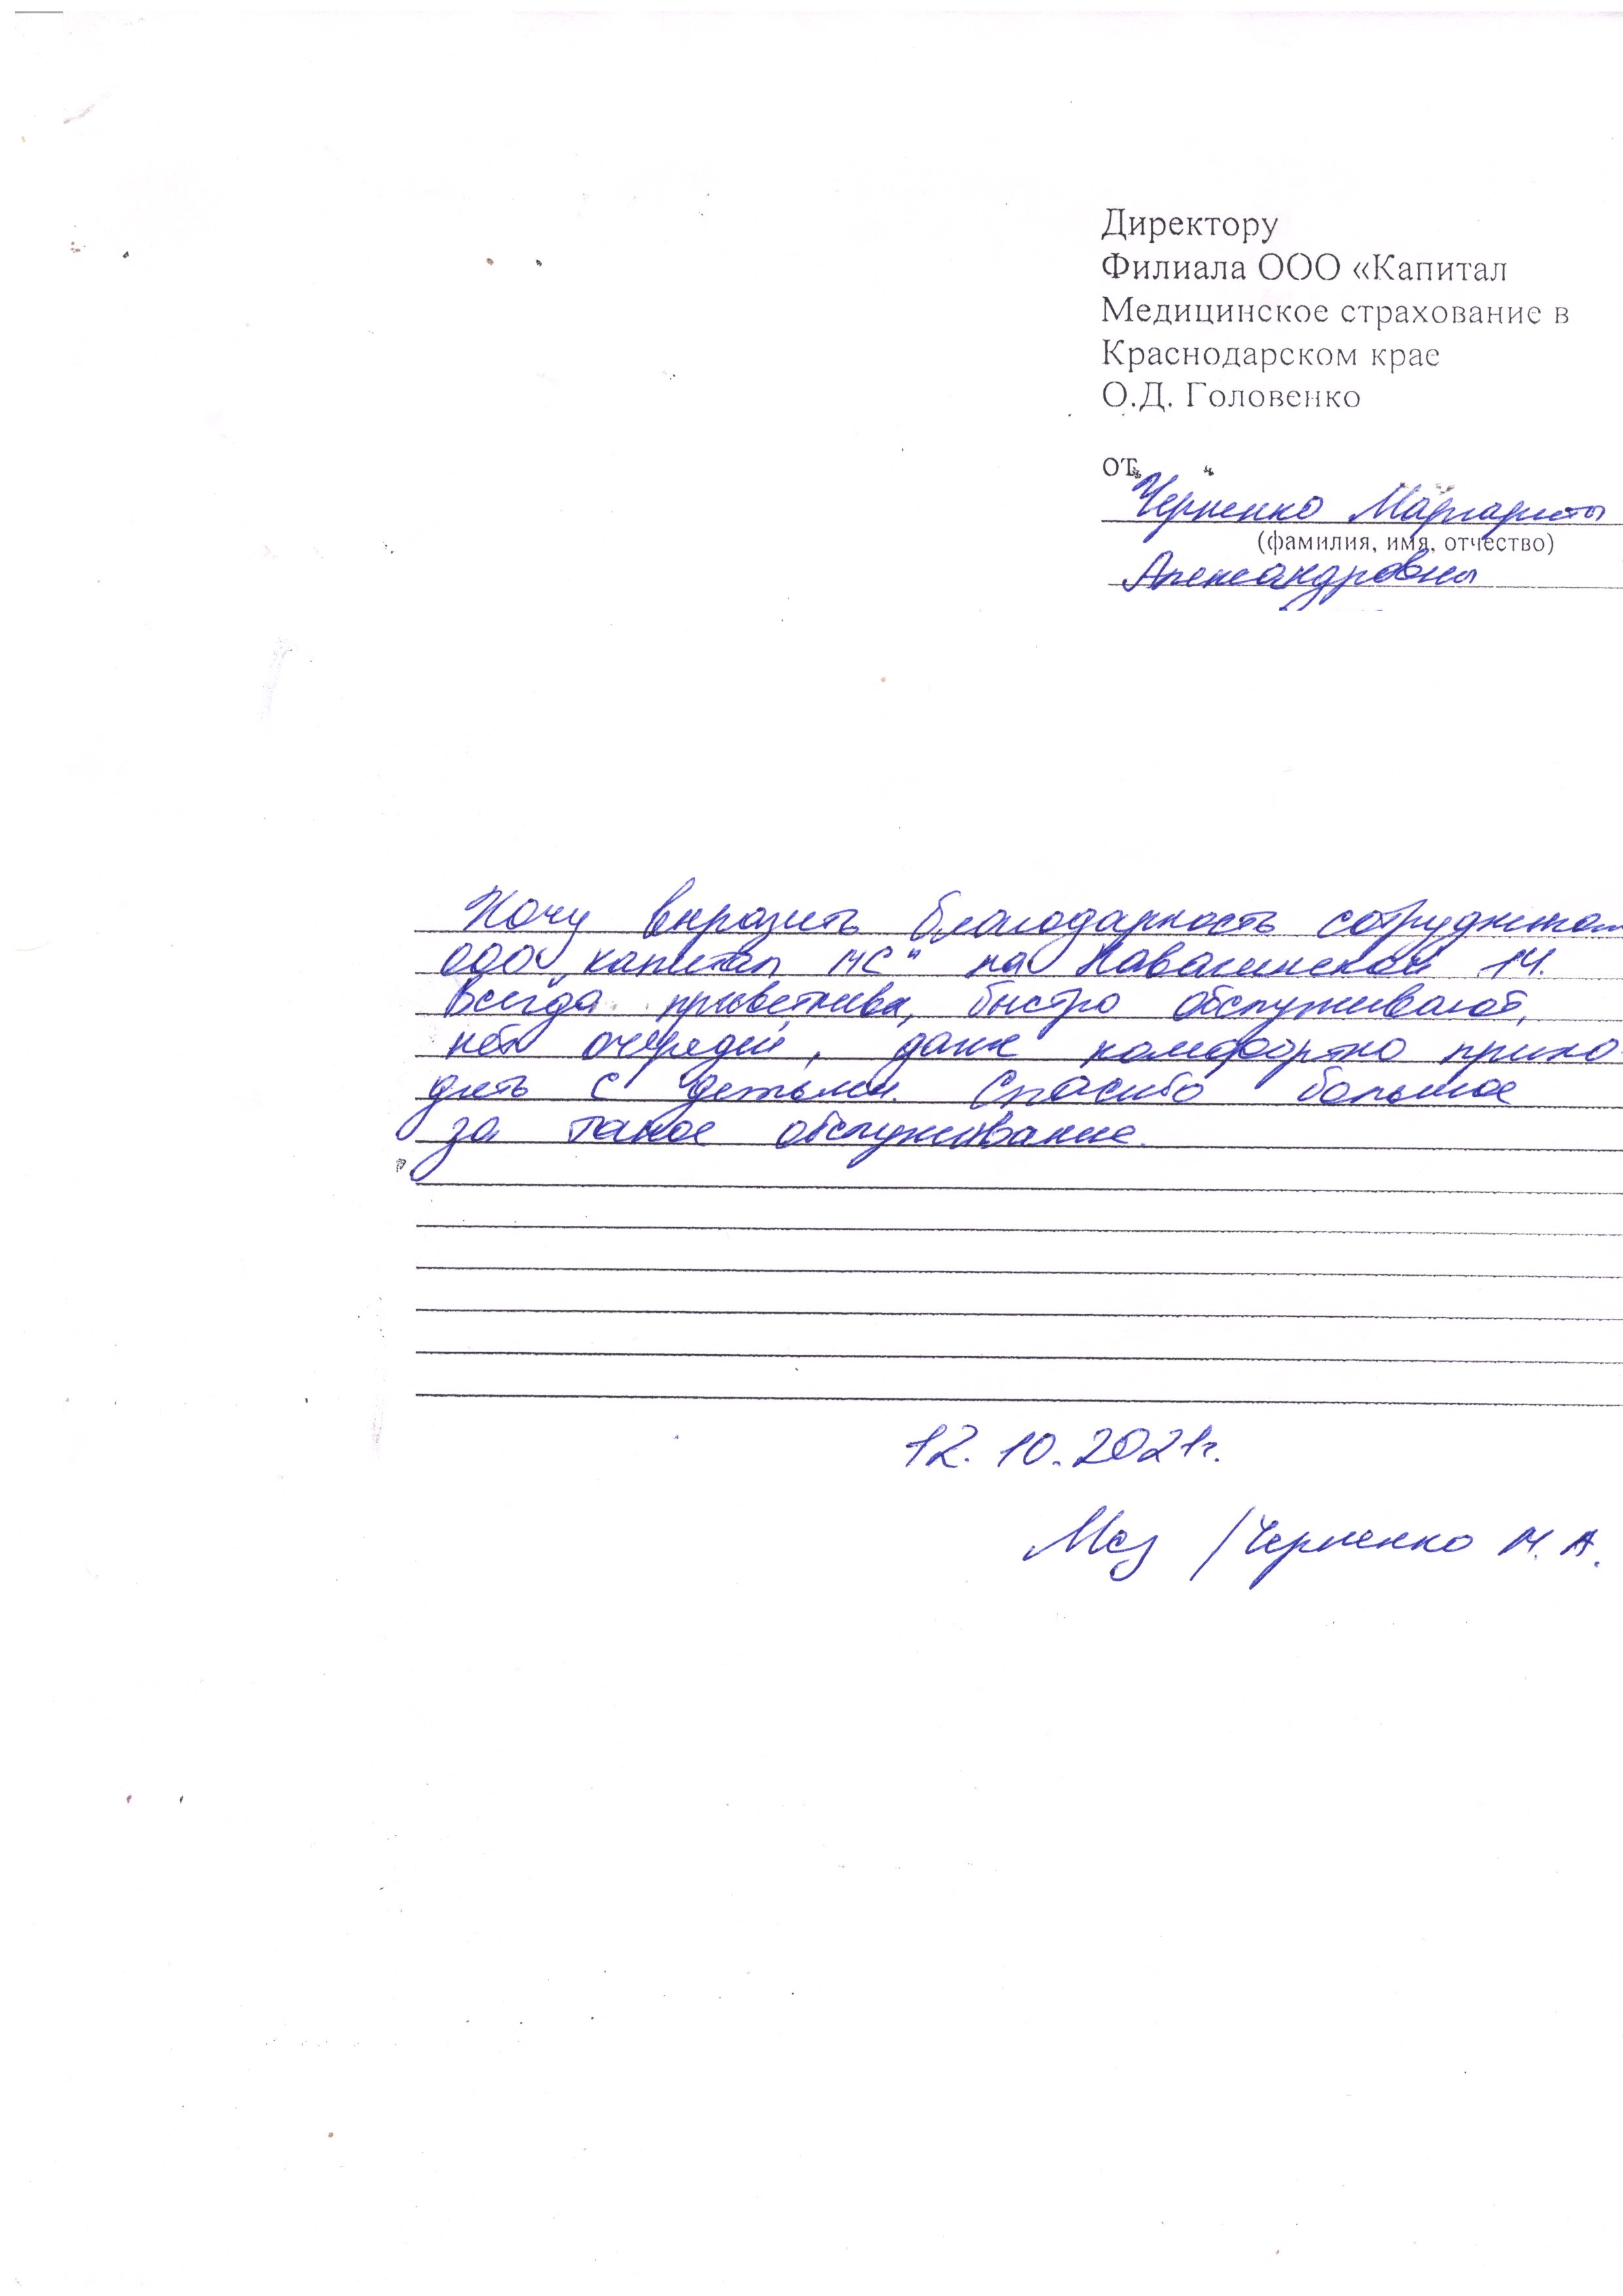 Директору
Филиала ООО «Капитал
Медицинское страхование в
Краснодарском крае
О.Д. Головенко
от
Черненко Маргариты
(фамилия, имя, отчество)
Александровны
Хочу выразить благодарность сотрудникам
ООО „Капитал МС“ на Навагинской 14.
Всегда приветливы, быстро обслуживают,
нет очередей, даже комфортно прихо
дить с детьми. Спасибо большое
за такое обслуживание.
12.10.2021г.
/Черненко М.А.